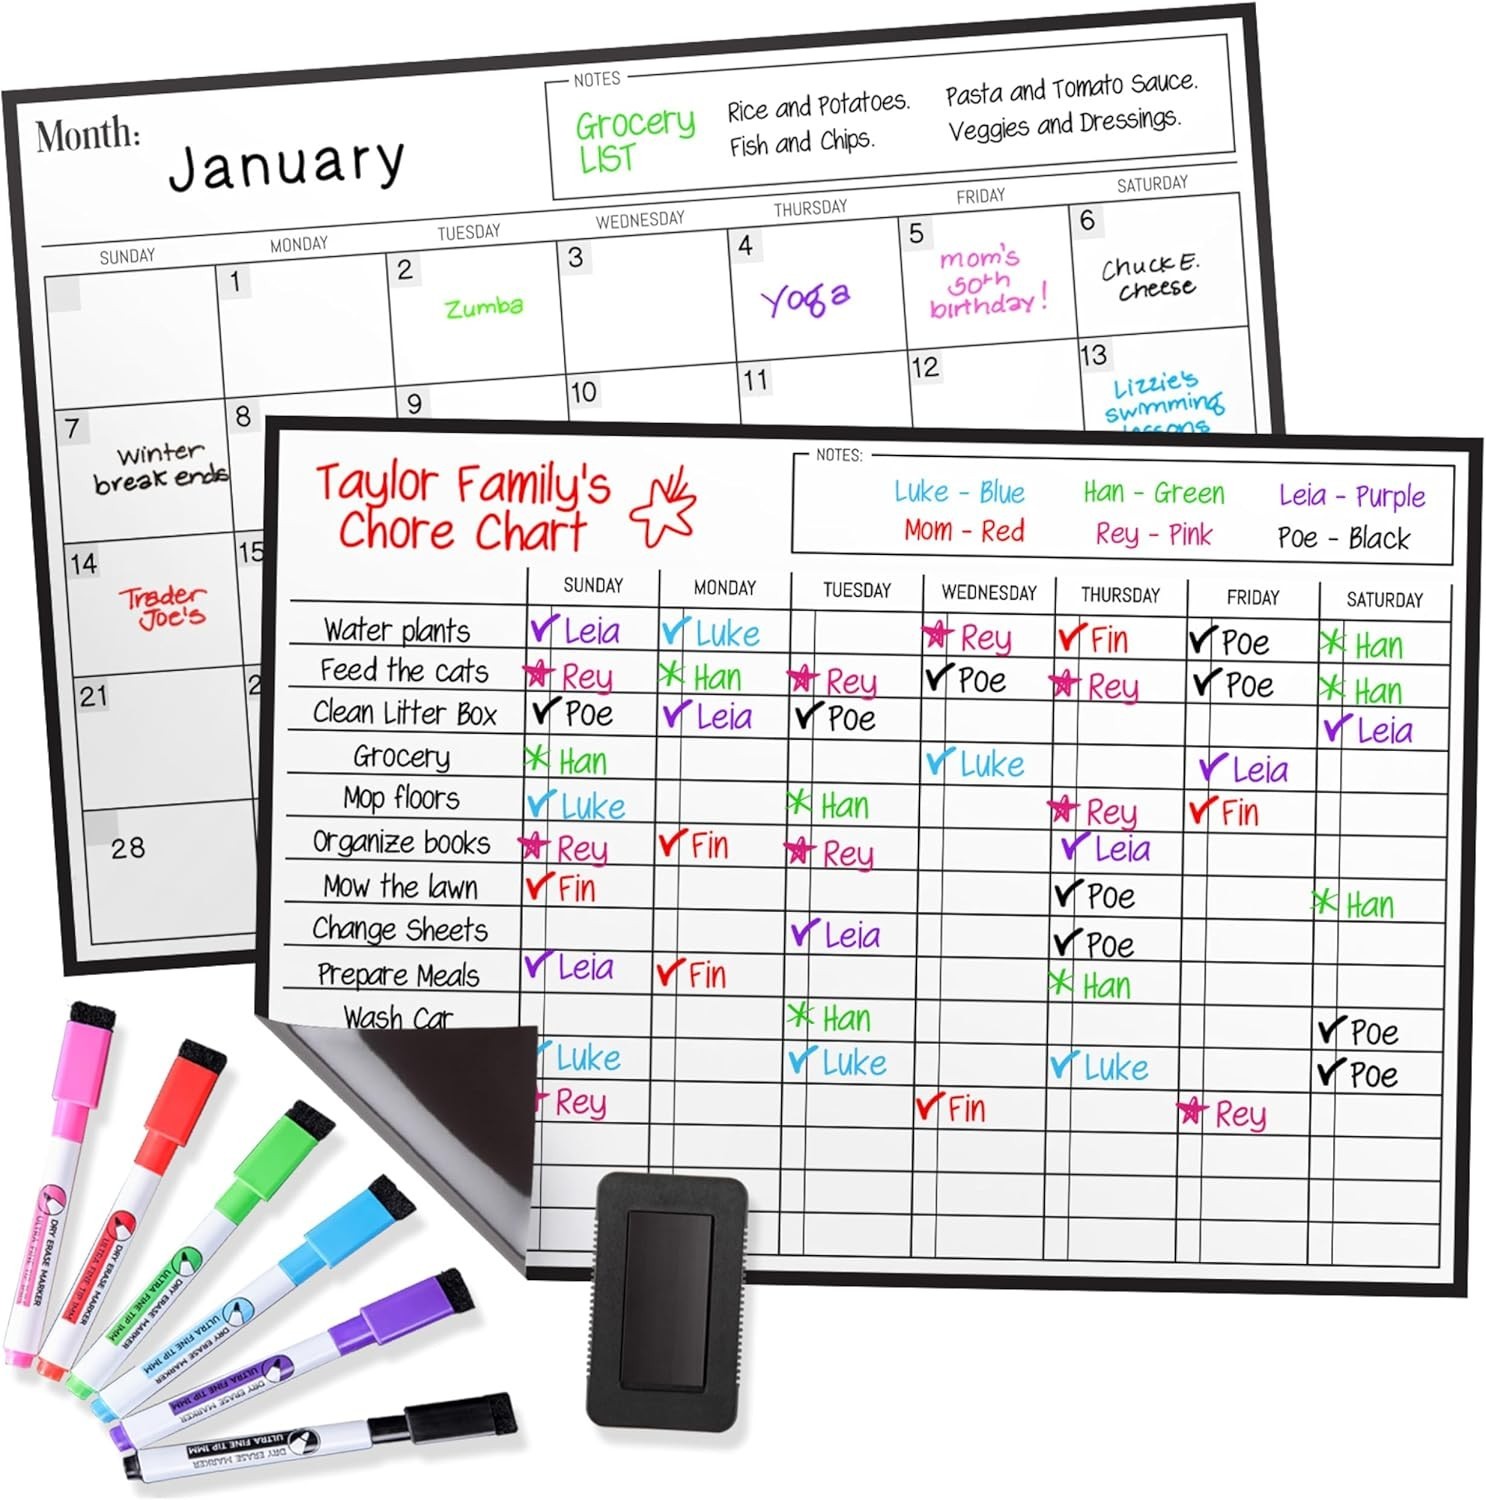 Month:
January
NOTES
Grocery
LIST
Rice and Potatoes.
Fish and Chips.
Pasta and Tomato Sauce.
Veggies and Dressings.
SUNDAY MONDAY TUESDAY WEDNESDAY THURSDAY FRIDAY SATURDAY
1 2 3 4 5 6
Zumba
Yoga
mom's
50th
birthday!
Chuck E.
Cheese
7 8 9 10 11 12 13
Winter
break ends
Lizzie's
swmming
lessons
14 15
Trader
Joe's
21 2
28
Taylor Family's
Chore Chart
NOTES:
Luke - Blue Han - Green Leia - Purple
Mom - Red Rey - Pink Poe - Black
SUNDAY MONDAY TUESDAY WEDNESDAY THURSDAY FRIDAY SATURDAY
Water plants Leia Luke Rey Fin Poe Han
Feed the cats Rey Han Rey Poe Rey Poe Han
Clean Litter Box Poe Leia Poe Leia
Grocery Han Luke Leia
Mop floors Luke Han Rey Fin
Organize books Rey Fin Rey Leia
Mow the lawn Fin Poe Han
Change Sheets Leia Poe
Prepare Meals Leia Fin Han
Wash Car Han Poe
Luke Luke Luke Poe
Rey Fin Rey
DRY ERASE MARKER
ULTRA FINE TIP 1MM
DRY ERASE MARKER
ULTRA FINE TIP 1MM
DRY ERASE MARKER
ULTRA FINE TIP 1MM
DRY ERASE MARKER
ULTRA FINE TIP 1MM
DRY ERASE MARKER
ULTRA FINE TIP 1MM
DRY ERASE MARKER
ULTRA FINE TIP 1MM